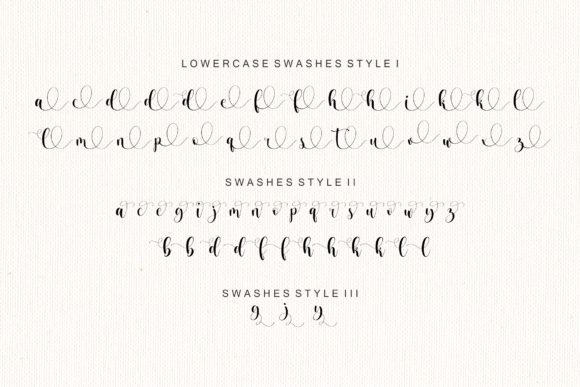 LOWERCASE SWASHES STYLE I
a c d d d e f f h h i k k l
l m n p o q r s t u v w x z
SWASHES STYLE II
a c e g i j m n o p q r s u v w y z
b b d d f f h h k k l l
SWASHES STYLE III
g j y